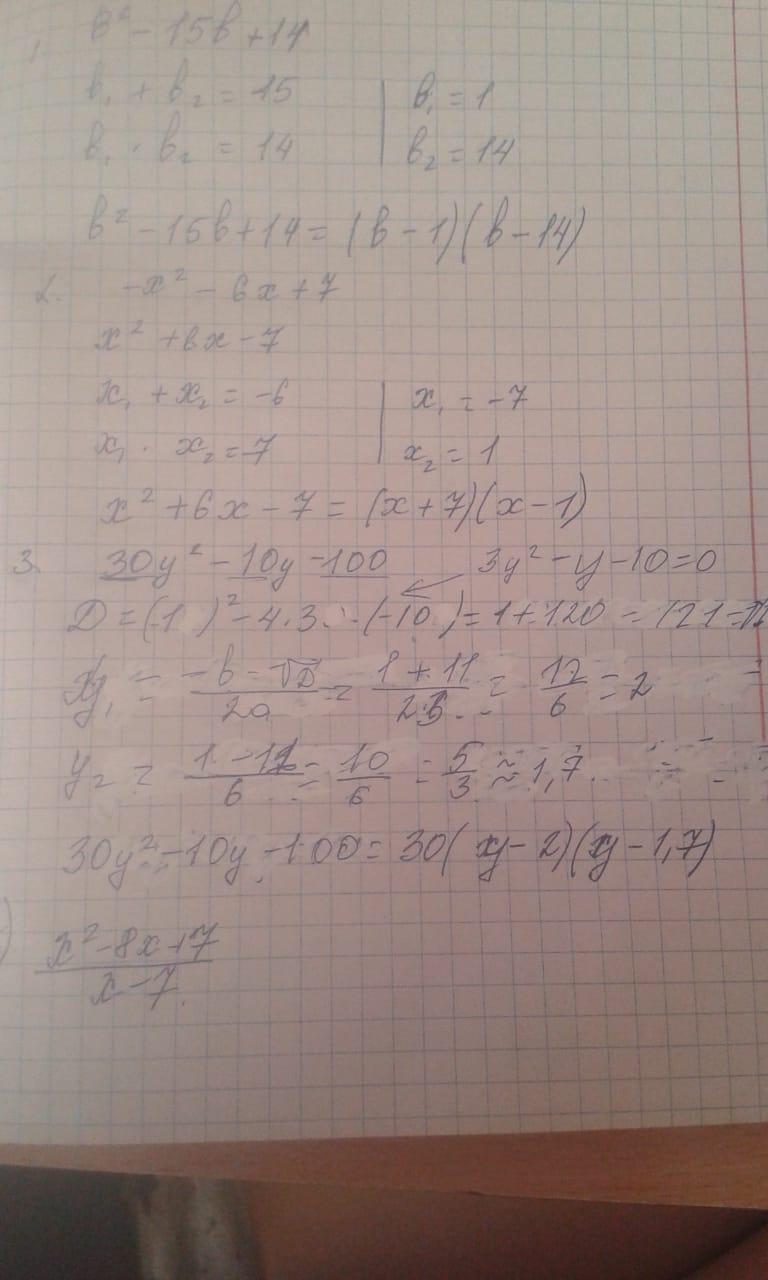 1, в² - 15в + 14
в₁ + в₂ = 15 | в₁ = 1
в₁ · в₂ = 14 | в₂ = 14
в² - 15в + 14 = (в - 1)(в - 14)
2. -x² - 6x + 7
x² + 6x - 7
x₁ + x₂ = -6 | x₁ = -7
x₁ · x₂ = 7 | x₂ = 1
x² + 6x - 7 = (x + 7)(x - 1)
3. 30y² - 10y - 100 3y² - y - 10 = 0
D = (-1)² - 4·3·(-10) = 1 + 120 = 121 = 11
y₁ = (-b - √D)/2a = (1 + 11)/(2·3) = 12/6 = 2
y₂ = (1 - 11)/6 = 10/6 = 5/3 ≈ 1,7
30y² - 10y - 100 = 30(y - 2)(y - 1,7)
(x² - 8x + 7)/(x - 7)